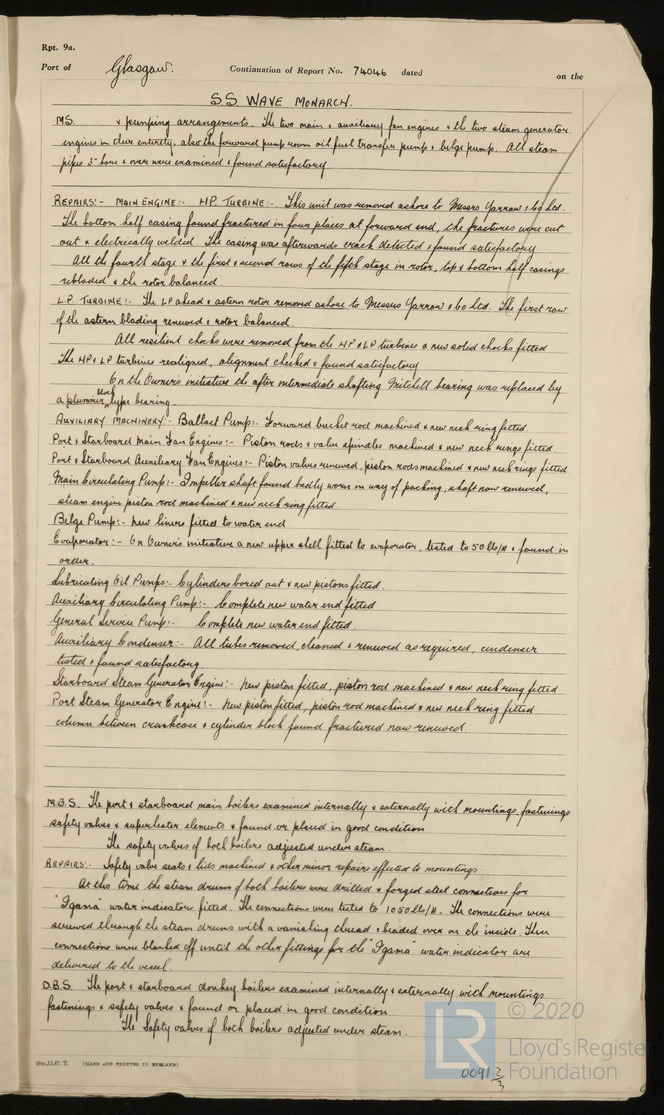 Rpt. 9a.
Port of Glasgow. Continuation of Report No. 74046 dated on the
S.S. WAVE MONARCH.
MS. & pumping arrangements. The two main & auxiliary fan engines & the two steam generator
engines in their entirety, also the forward pump room oil fuel transfer pump & bilge pump. All steam
pipes 3" bore & over were examined & found satisfactory
REPAIRS:- MAIN ENGINE:- HP. TURBINE:- This unit was removed ashore to Messrs Yarrow & Co Ltd.
The bottom half casing found fractured in four places at forward end, the fractures were cut
out & electrically welded. The casing was afterwards crack detected & found satisfactory
All the fourth stage & the first & second rows of the fifth stage in rotor, top & bottom half casings
rebladed & the rotor balanced
L.P TURBINE:- The LP ahead & astern rotor removed ashore to Messrs Yarrow & Co Ltd. The first row
of the astern blading renewed & rotor balanced
All resilient chocks were removed from the HP & LP turbines & new solid chocks fitted
The HP & LP turbines realigned, alignment checked & found satisfactory
On the Owner's initiative the after intermediate shafting Mitchell bearing was replaced by
a plummer block type bearing.
AUXILIARY MACHINERY:- Ballast Pump:- Forward bucket rod machined & new neck ring fitted
Port & Starboard Main Fan Engines:- Piston rods & valve spindles machined & new neck rings fitted
Port & Starboard Auxiliary Fan Engines:- Piston valves renewed, piston rods machined & new neck rings fitted
Main Circulating Pump:- Impeller shaft found badly worn in way of packing, shaft now renewed,
steam engine piston rod machined & new neck ring fitted.
Bilge Pump:- New liners fitted to water end
Evaporator:- On Owner's initiative a new upper shell fitted to evaporator, tested to 50 lbs/□" & found in
order.
Lubricating Oil Pumps:- Cylinders bored out & new pistons fitted.
Auxiliary Circulating Pump:- Complete new water end fitted
General Service Pump:- Complete new water end fitted.
Auxiliary Condenser:- All tubes removed, cleaned & renewed as required, condenser
tested & found satisfactory.
Starboard Steam Generator Engine:- New piston fitted, piston rod machined & new neck ring fitted
Port Steam Generator Engine:- New piston fitted, piston rod machined & new neck ring fitted
column between crankcase & cylinder block found fractured now renewed.
M.B.S. The port & starboard main boilers examined internally & externally with mountings, fastenings
safety valves & superheater elements & found or placed in good condition
The safety valves of both boilers adjusted under steam.
REPAIRS:- Safety valve seats & lids machined & other minor repairs effected to mountings
At this time the steam drums of both boilers were drilled & forged steel connections for
"Igema" water indicators fitted. The connections were tested to 1050 lbs/□". The connections were
screwed through the steam drums with a vanishing thread & beaded over on the inside. These
connections were blanked off until the other fittings for the "Igema" water indicator are
delivered to the vessel.
D.B.S. The port & starboard donkey boilers examined internally & externally with mountings
fastenings & safety valves & found or placed in good condition
The Safety valves of both boilers adjusted under steam.
(MADE AND PRINTED IN ENGLAND)
0091 2/3
LR
© 2020
Lloyd's Register
Foundation